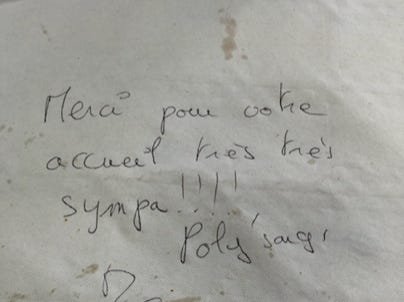 Merci pour votre
accueil très très
sympa !!!!
Poly'song,